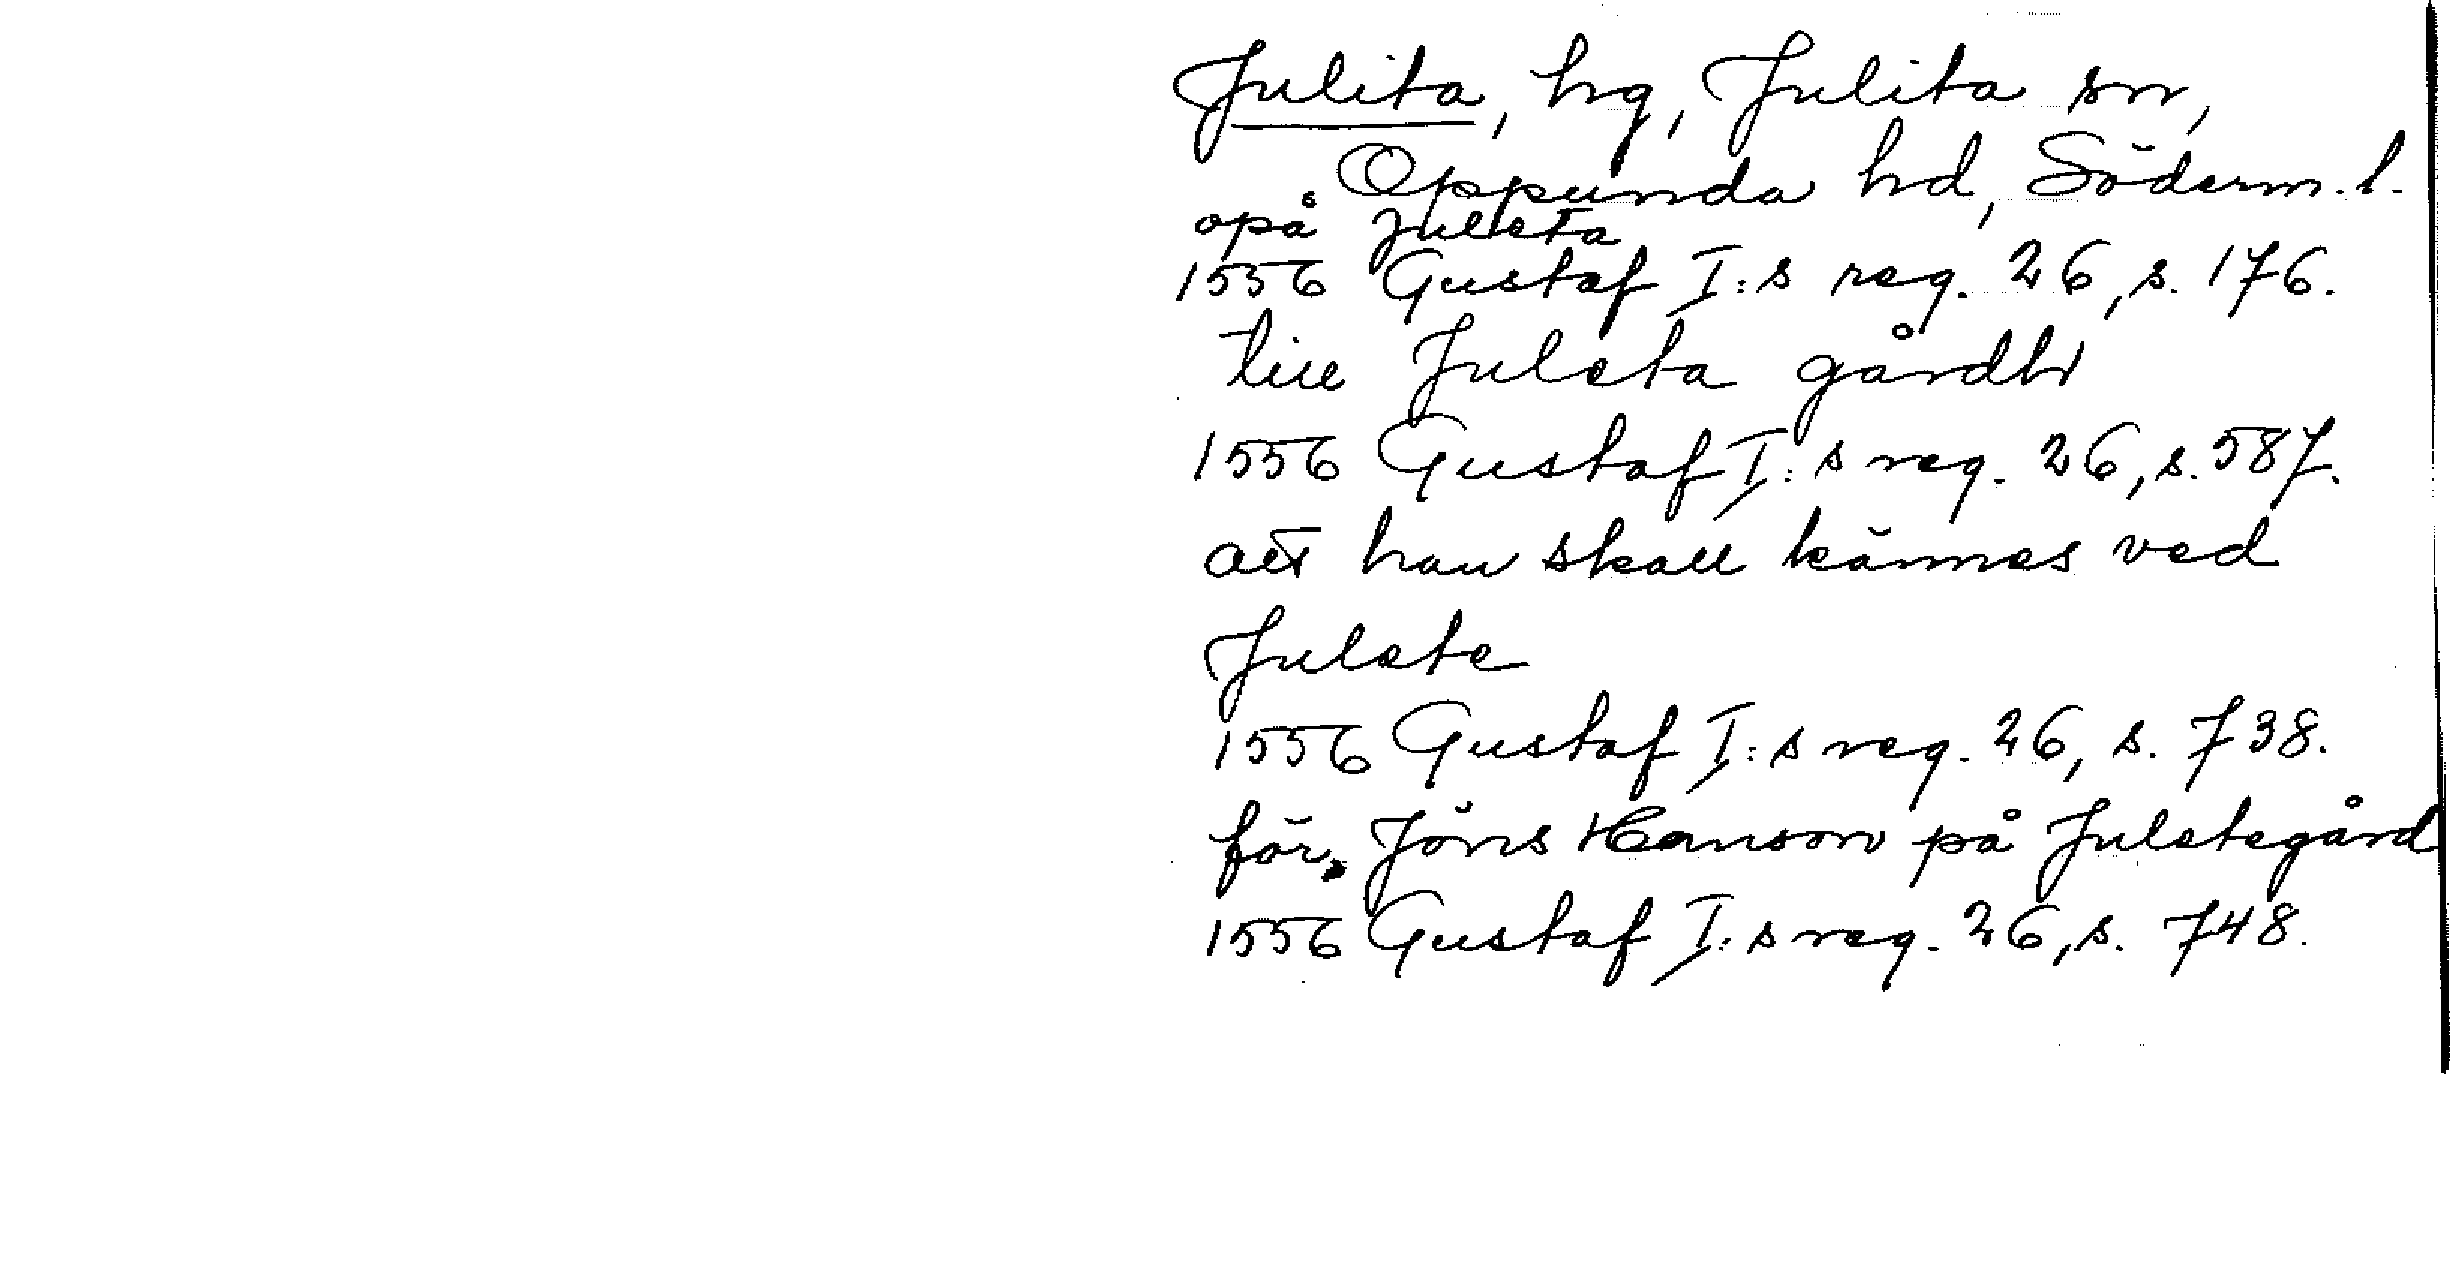 Julita, hg, Julita sn,
Oppunda hd, Söderm.l.
opå Juleta
1556 Gustaf I:s reg. 26, s. 176.
till Juleta gårdh
1556 Gustaf I:s reg. 26, s. 587.
att han skall kännes ved
Julete
1556 Gustaf I:s reg. 26, s. 738.
för, Jöns Hanson på Juletegård
1556 Gustaf I:s reg. 26, s. 748.